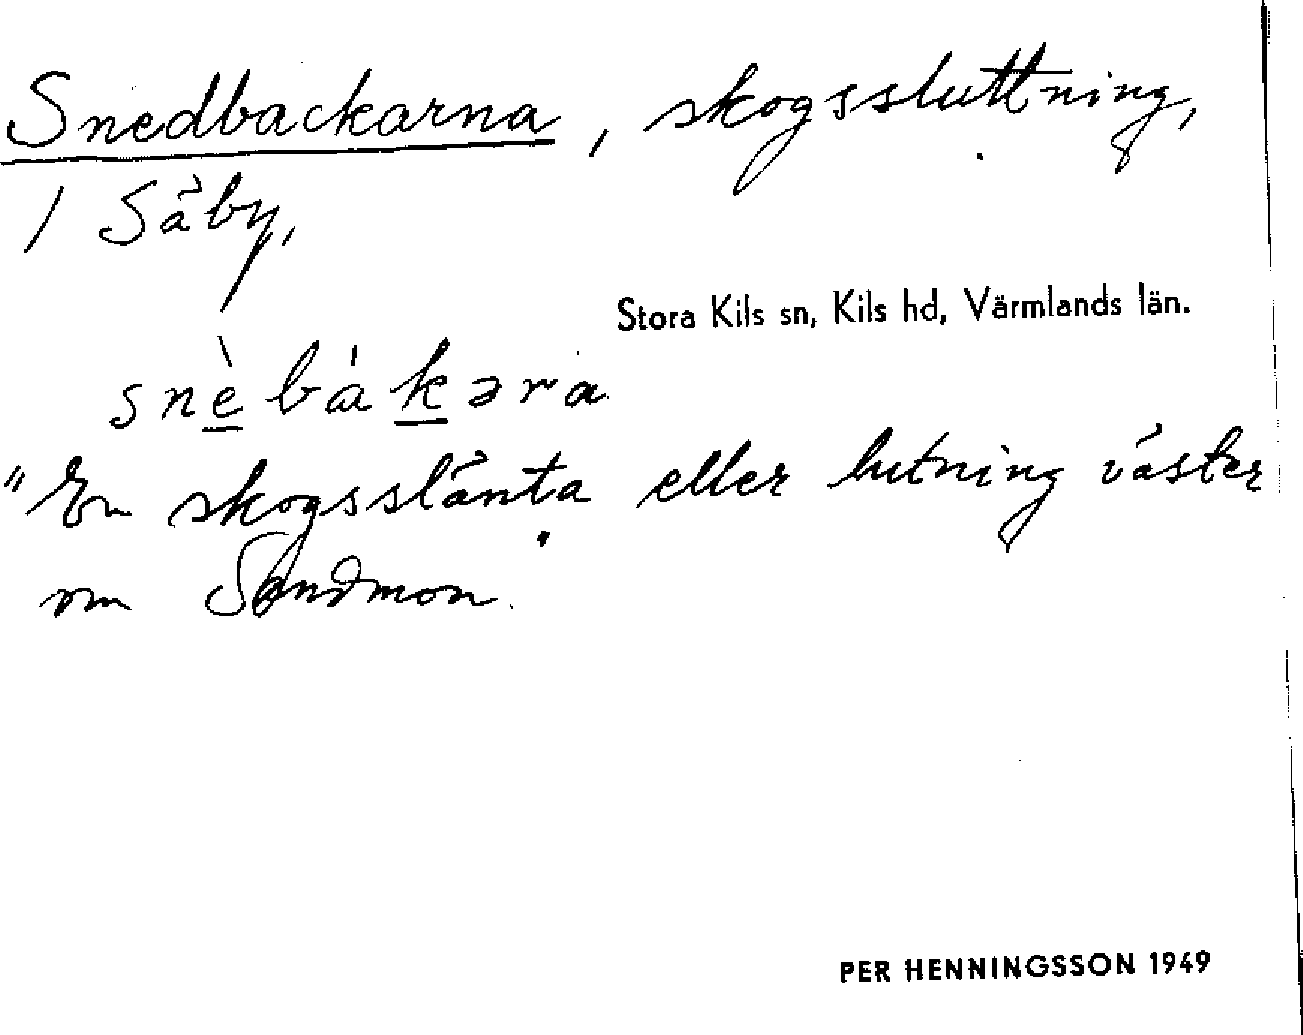 Snedbackarna, skogssluttning,
/ Säby,
Stora Kils sn, Kils hd, Värmlands län.
snèbákəra
"En skogsslänta eller lutning väster
om Sandmon."
PER HENNINGSSON 1949